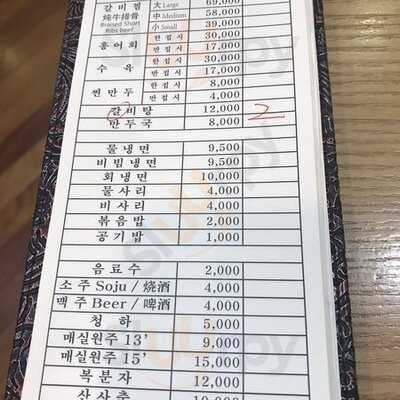 갈비찜 大 Large 69,000
炖牛排骨 中 Medium 58,000
Braised Short Ribs beef 小 Small 39,000
홍어회 한접시 30,000
반접시 17,000
수육 한접시 30,000
반접시 17,000
찐만두 한접시 8,000
반접시 4,000
갈비탕 12,000 2
만두국 8,000
물냉면 9,500
비빔냉면 9,500
회냉면 10,000
물사리 4,000
비사리 4,000
볶음밥 2,000
공기밥 1,000
음료수 2,000
소주 Soju / 烧酒 4,000
맥주 Beer / 啤酒 4,000
청하 5,000
매실원주 13' 9,000
매실원주 15' 15,000
복분자 12,000
산사춘 10,000